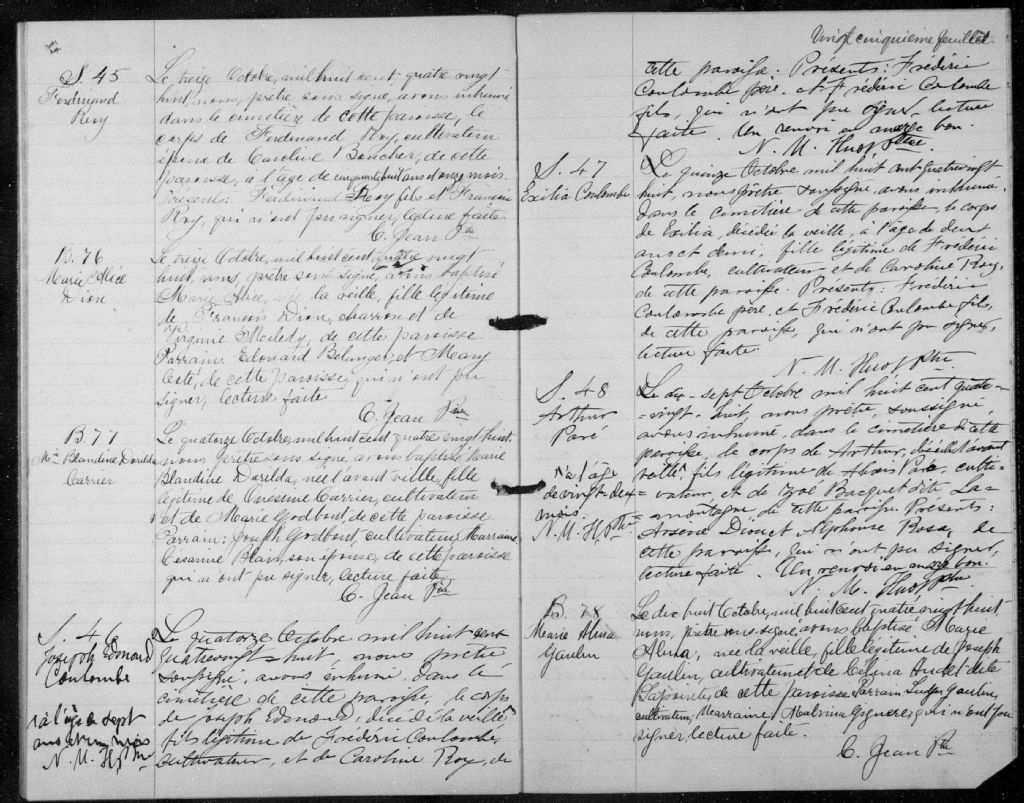 S. 45
Ferdinand
Roy
Le treize Octobre, mil huit cent quatre vingt
huit, nous, prêtre sous signé, avons inhumé
dans le cimetière de cette paroisse, le
corps de Ferdinand Roy, cultivateur
époux de Caroline Boucher, de cette
paroisse, à l'âge de cinquante huit ans et onze mois.
Présents: Ferdinand Roy fils et François
Roy, qui n'ont pu signer, lecture faite
C. Jean Ptre
B. 76
Marie Alice
Dion
Le treize Octobre, mil huit cent quatre vingt
huit, nous, prêtre sous signé, avons baptisé
Marie Alice, née la veille, fille légitime
de François Dion, charron et de
Virginie, de cette paroisse
Parrain Edouard Belanger, et Mary
de cette paroisse, qui n'ont pu
signer, lecture faite
C. Jean Ptre
B. 77
Mie Blandine Darilda
Carrier
Le quatorze Octobre, mil huit cent quatre vingt huit,
nous prêtre sous signé, avons baptisé Marie
Blandine Darilda, née l'avant veille, fille
légitime de Onesime Carrier, cultivateur
et de Marie Godbout, de cette paroisse
Parrain: Joseph Godbout, cultivateur; Marraine
Césarine Blais, son épouse, de cette paroisse
qui n'ont pu signer, lecture faite
C. Jean Ptre
S. 46
Joseph Edmond
Coulombe
à l'âge de sept
ans et un mois
N. M. H, Ptre
Le quatorze Octobre mil huit cent
quatre vingt-huit, nous prêtre
soussigné, avons inhumé dans le
cimetière de cette paroisse, le corps
de Joseph Edmond, décédé la veille
fils légitime de Frédéric Coulombe,
cultivateur, et de Caroline Roy, de
Vingt cinquième feuillet
cette paroisse. Présents: Frédéric
Coulombe père, et Frédéric Coulombe
fils, qui n'ont pu signer, lecture
faite. Un renvoi en marge bon.
N. M. Huot Ptre
S. 47
Exilia Coulombe
Le quinze Octobre mil huit cent quatre vingt
huit, nous prêtre soussigné, avons inhumé
dans le cimetière de cette paroisse, le corps
de Exilia, décédée la veille, à l'âge de deux
ans et demi, fille légitime de Frédéric
Coulombe, cultivateur et de Caroline Roy,
de cette paroisse. Présents: Frédéric
Coulombe père, et Frédéric Coulombe fils,
de cette paroisse, qui n'ont pu signer,
lecture faite.
N. M. Huot Ptre
S. 48
Arthur
Paré
à l'âge
de vingt-deux
mois.
N. M. H, Ptre
Le dix-sept Octobre mil huit cent quatre-
-vingt-huit, nous prêtre, soussigné,
avons inhumé, dans le cimetière de cette
paroisse, le corps de Arthur, décédé l'avant
veille, fils légitime de Alexis Paré, culti-
-vateur, et de Zoé Bacquet dite La-
=montagne de cette paroisse. Présents:
Arsène Dion et Alphonse Rosa, de
cette paroisse, qui n'ont pu signer,
lecture faite. Un renvoi en marge bon.
N. M. Huot Ptre
B. 78
Marie Alma
Gaulin
Le dix huit Octobre, mil huit cent quatre vingt huit,
nous, prêtre sous signé, avons baptisé Marie
Alma, née la veille, fille légitime de Joseph
Gaulin, cultivateur et de Célina Audet dite
Lapointe, de cette paroisse. Parrain: Gaulin,
cultivateur; Marraine: Malvina, qui n'ont pu
signer, lecture faite.
C. Jean Ptre